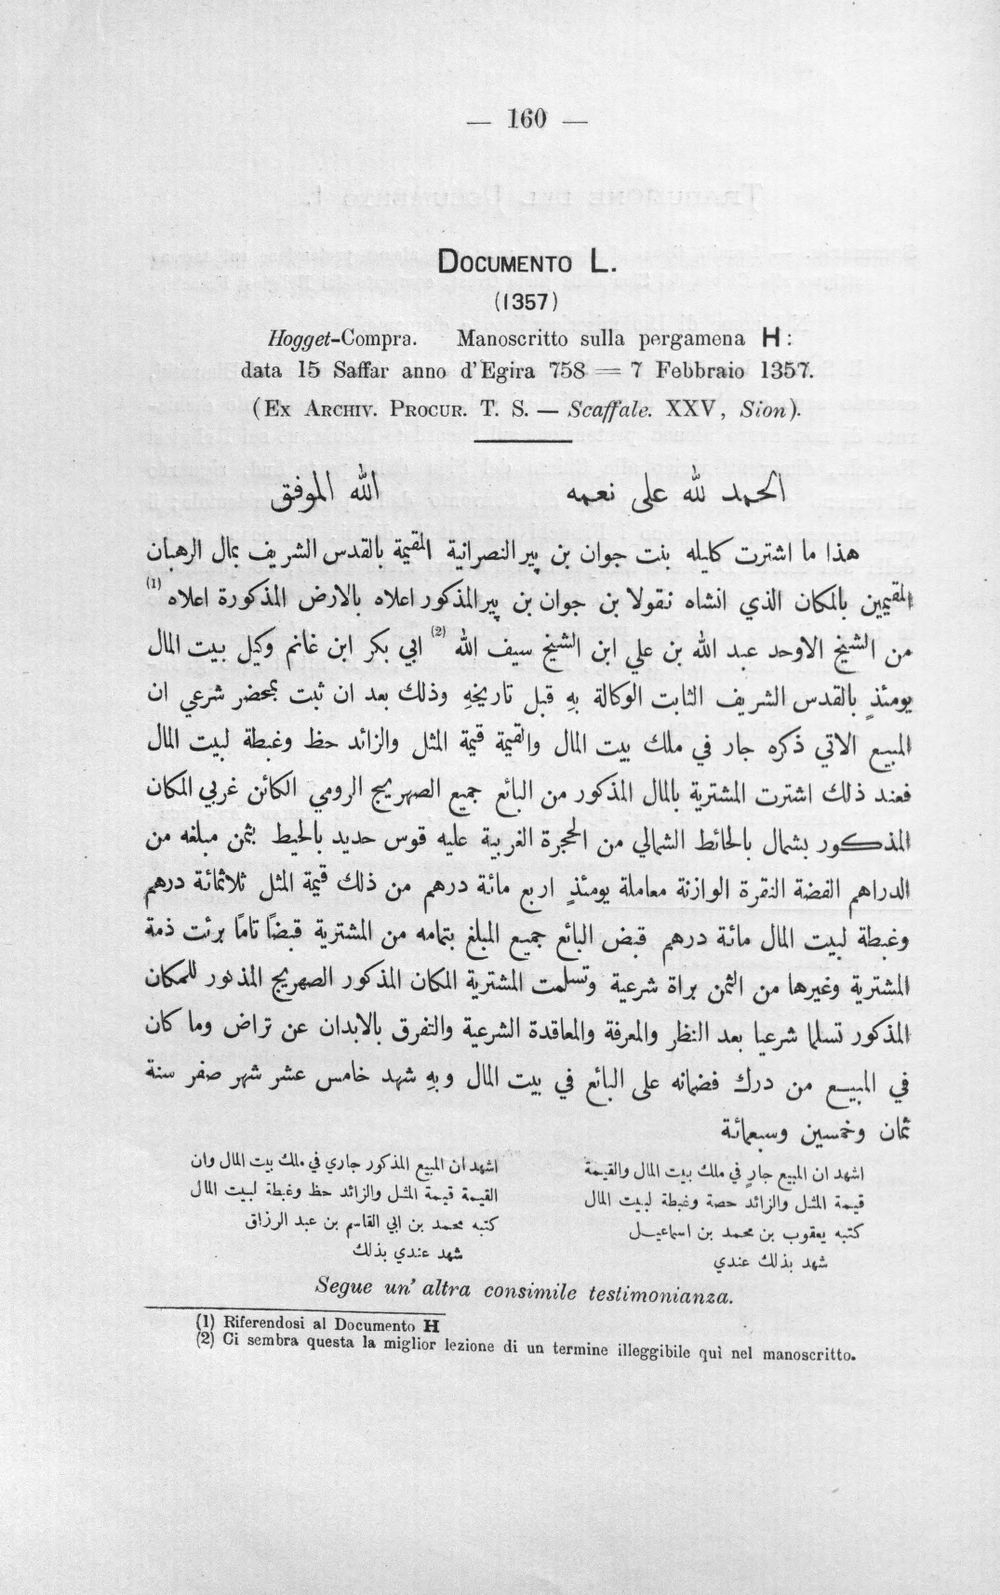 — 160 —
DOCUMENTO L.
(1357)
Hogget-Compra. Manoscritto sulla pergamena H:
data 15 Saffar anno d'Egira 758 = 7 Febbraio 1357.
(EX ARCHIV. PROCUR. T. S. — Scaffale. XXV, Sion).
الحمد لله على نعمه الله الموفق
هذا ما اشترت كليله بنت جوان بن پير النصرانية المقيمة بالقدس الشريف بمال الرهبان
المقيمين بالمكان الذي انشاه نقولا بن جوان بن پير المذكور اعلاه بالارض المذكورة اعلاه (1)
من الشيخ الاوحد عبد الله بن علي ابن الشيخ سيف الله (2) ابي بكر ابن غانم وكيل بيت المال
يومئذٍ بالقدس الشريف الثابت الوكالة بهِ قبل تاريخهِ وذلك بعد ان ثبت بمحضر شرعي ان
المبيع الاتي ذكره جار في ملك بيت المال والقيمة قيمة المثل والزائد حظ وغبطة لبيت المال
فعند ذلك اشترت المشترية بالمال المذكور من البائع جميع الصهريج الرومي الكائن غربي المكان
المذكور بشمال بالحائط الشمالي من الحجرة الغربية عليه قوس حديد بالحيط بثمن مبلغه من
الدراهم الفضة النقرة الوازنة معاملة يومئذٍ اربع مائة درهم من ذلك قيمة المثل ثلاثمائة درهم
وغبطة لبيت المال مائة درهم قبض البائع جميع المبلغ بتمامه من المشترية قبضًا تامًا برئت ذمة
المشترية وغيرها من الثمن براة شرعية وتسلمت المشترية المكان المذكور الصهريج المذكور للمكان
المذكور تسلما شرعيا بعد النظر والمعرفة والمعاقدة الشرعية والتفرق بالابدان عن تراض وما كان
في المبيع من درك فضمانه على البائع في بيت المال وبهِ شهد خامس عشر شهر صفر سنة
ثمان وخمسين وسبعمائة
اشهد ان المبيع جارٍ في ملك بيت المال والقيمة
قيمة المثل والزائد حصة وغبطة لبيت المال
كتبه يعقوب بن محمد بن اسماعيل
شهد بذلك عندي
اشهد ان المبيع المذكور جاري في ملك بيت المال وان
القيمة قيمة المثل والزائد حظ وغبطة لبيت المال
كتبه محمد بن ابي القاسم بن عبد الرزاق
شهد عندي بذلك
Segue un' altra consimile testimonianza.
(1) Riferendosi al Documento H
(2) Ci sembra questa la miglior lezione di un termine illeggibile quì nel manoscritto.